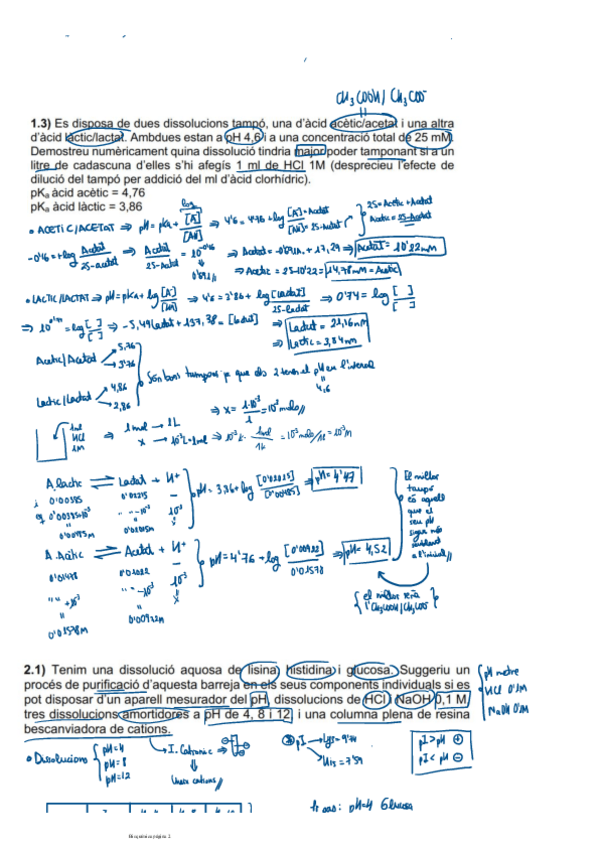 CH₃COOH / CH₃COO⁻
1.3) Es disposa de dues dissolucions tampó, una d'àcid acètic/acetat i una altra
d'àcid làctic/lactat. Ambdues estan a pH 4,6 i a una concentració total de 25 mM.
Demostreu numèricament quina dissolució tindria major poder tamponant si a un
litre de cadascuna d'elles s'hi afegís 1 ml de HCl 1M (desprecieu l'efecte de
dilució del tampó per addició del ml d'àcid clorhídric).
pKₐ àcid acètic = 4,76
pKₐ àcid làctic = 3,86
• ACETIC/ACETAT ⇒ pH = pKa + log [A]/[AH] ⇒ 4'6 = 4'76 + log [A] = Acetat / [AH] = 25 - Acetat
25 = Acetic + Acetat
Acetic = 25 - Acetat
-0'16 = + log Acetat / 25-acetat ⇒ Acetat / 25-Acetat = 10^-0'16
⇒ Acetat = 10'22 mM
⇒ Acetic = 25-10'22 = 14,78 mM = Acetic
• LACTIC/LACTAT ⇒ pH = pKa + log [A]/[HA] ⇒ 4'6 = 3'86 + log [Lactat] / 25-lactat ⇒ 0'74 = log [ ]/[ ]
⇒ Lactat = 21,16 mM
⇒ Lactic = 3,84 mM
Acetic/Acetat 5,76 3'76
Lactic/Lactat 4,86 2,86
Són bons tampons ja que els 2 tenen el pH en l'interval
4,6
1ml HCl 1M
⇒ 1 mol → 1L
⇒ x = 1·10⁻³ / 1 = 10⁻³ mols
A. lactic ⇌ Lactat + H⁺
0'00385
0'00485 M
pH = 3,86 + log [0'02015]/[0'00485] ⇒ pH = 4'47
A. Acètic ⇌ Acetat + H⁺
0'01478
0'01022
10⁻³
0'01578 M
0'00922 M
pH = 4'76 + log [0'00922] / 0'01578 ⇒ pH = 4,52
El millor tampó és aquell que el seu pH sigui més semblant a l'inicial //
el millor seria l'CH₃COOH/CH₃COO⁻
2.1) Tenim una dissolució aquosa de lisina, histidina i glucosa. Suggeriu un
procés de purificació d'aquesta barreja en els seus components individuals si es
pot disposar d'un aparell mesurador del pH, dissolucions de HCl i NaOH 0,1 M,
tres dissolucions amortidores a pH de 4, 8 i 12, i una columna plena de resina
bescanviadora de cations.
pH metre
HCl 0'1M
NaOH 0'1M
• Dissolucions pH=4 pH=8 pH=12
→ I. Cationic →
Uneix cations //
pI → Lys = 9'74
→ His = 7'59
pI > pH ⊕
pI < pH ⊖
1r cas: pH=4 Glucosa
Bioquímica página 2